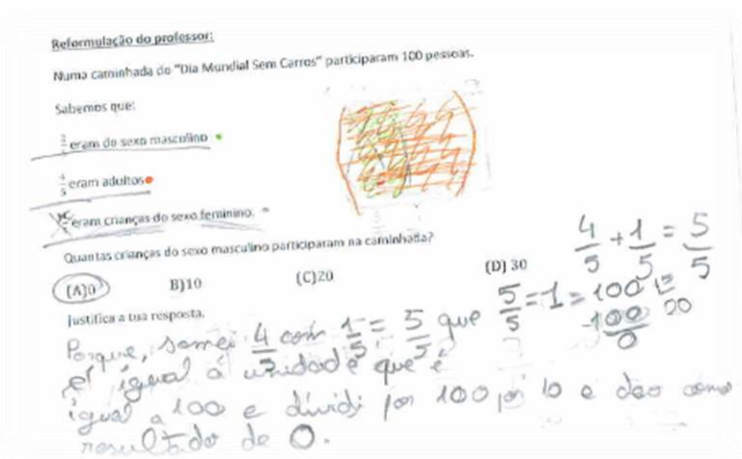 Reformulação do professor:
Numa caminhada do "Dia Mundial Sem Carros" participaram 100 pessoas.
Sabemos que:
eram do sexo masculino
4/5 eram adultos
eram crianças do sexo feminino.
Quantas crianças do sexo masculino participaram na caminhada?
(A)0 B)10 (C)20 (D) 30
4/5 + 1/5 = 5/5
Justifica a tua resposta.
5/5 = 1 = 100
-100
0
20
Porque, somei 4/5 com 1/5 = 5/5 que
é igual á unidade que é
igual a 100 e dividi por 100 por 10 e deo como
resultado de 0.